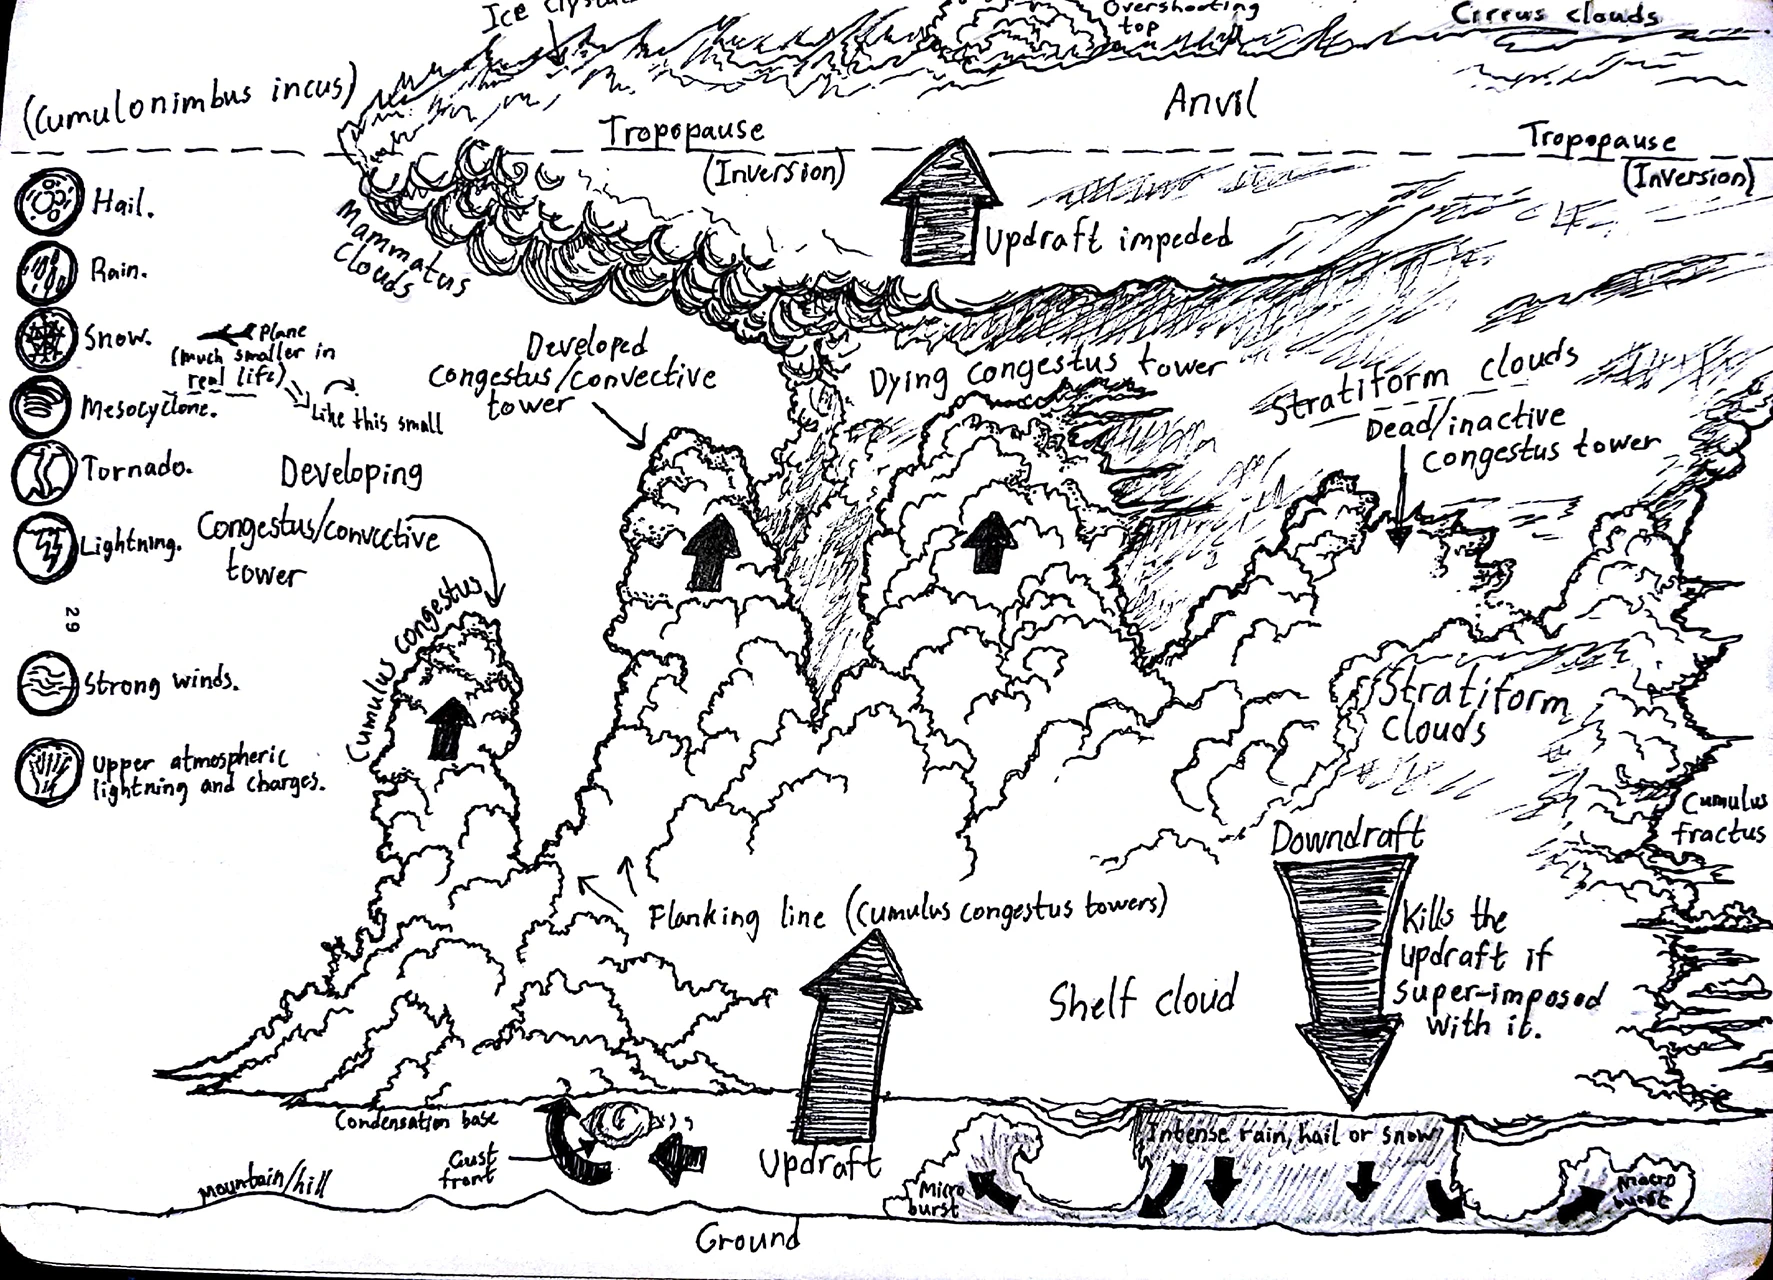 Ice
Overshooting
top
Cirrus clouds
(Cumulonimbus incus)
Anvil
Tropopause
(Inversion)
Tropopause
(Inversion)
Updraft impeded
Mammatus
Clouds
Hail.
Rain.
Snow.
Mesocyclone.
Tornado.
Lightning.
29
Strong winds.
Upper atmospheric
lightning and charges.
Plane
(much smaller in
real life)
Like this small
Developed
Congestus/convective
tower
Dying congestus tower
Stratiform clouds
Dead/inactive
congestus tower
Developing
Congestus/convective
tower
Cumulus congestus
Stratiform
clouds
Cumulus
fractus
Downdraft
Kills the
updraft if
super-imposed
with it.
Flanking line (Cumulus congestus towers)
Shelf cloud
Condensation base
Gust
front
Updraft
Intense rain, hail or snow
Micro
burst
Macro
burst
mountain/hill
Ground